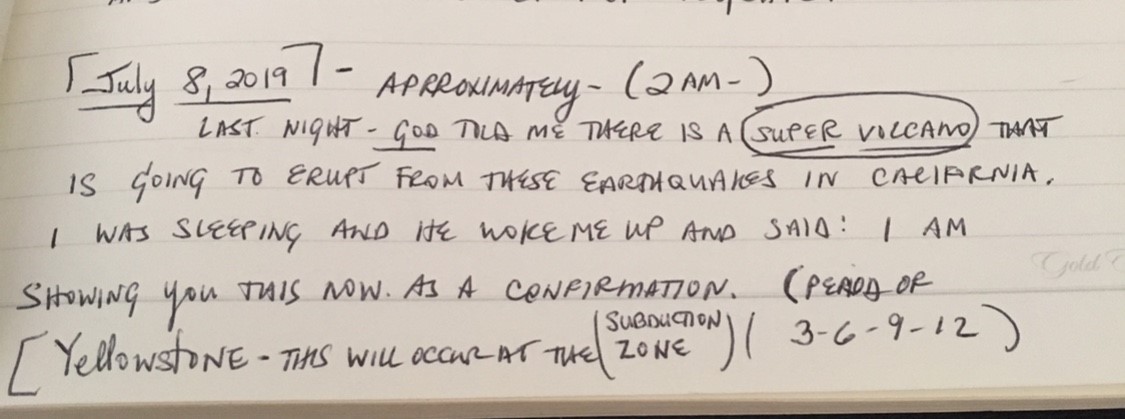 [July 8, 2019] - APPROXIMATELY - (2 AM-)
LAST NIGHT - GOD TOLD ME THERE IS A (SUPER VOLCANO) THAT
IS GOING TO ERUPT FROM THESE EARTHQUAKES IN CALIFORNIA.
I WAS SLEEPING AND HE WOKE ME UP AND SAID: I AM
Gold
SHOWING you THIS NOW. AS A CONFIRMATION. (PERIOD OF
[Yellowstone - THIS WILL OCCUR AT THE (SUBDUCTION ZONE) ( 3-6-9-12 )